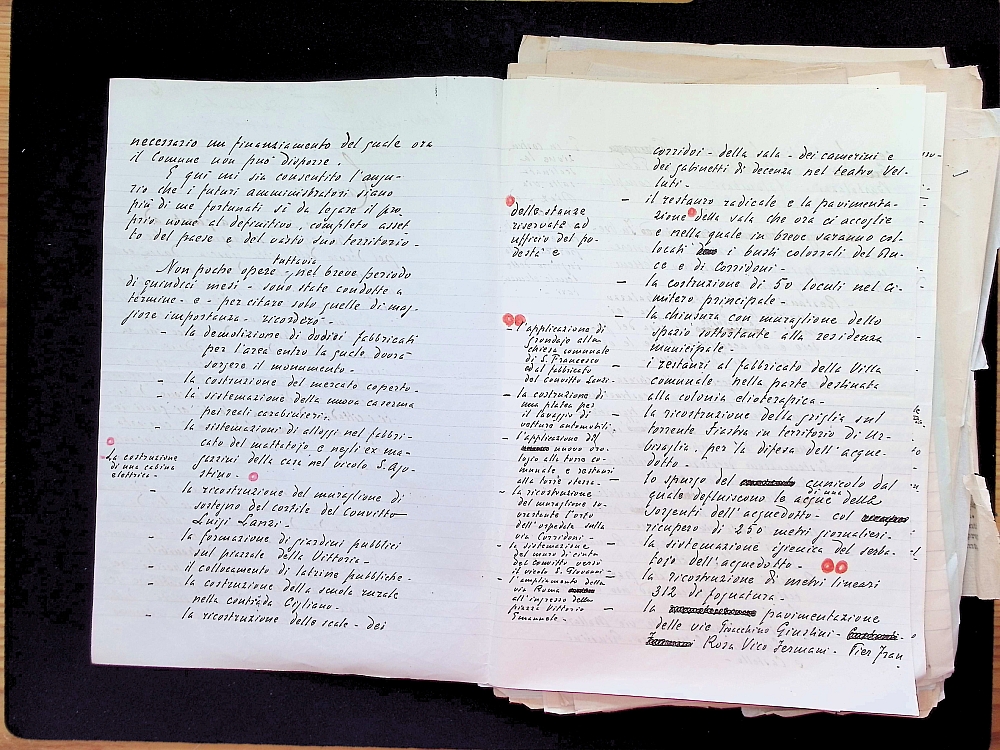 necessario un finanziamento del quale ora
il Comune non può disporre.
E qui mi sia consentito l'augu-
rio che i futuri amministratori siano
più di me fortunati sì da legare il pro
prio nome al definitivo, completo asset
to del paese e del vasto suo territorio -
tuttavia
Non poche opere - nel breve periodo
di quindici mesi - sono state condotte a
termine - e - per citare solo quelle di mag-
giore importanza - ricorderò -
- la demolizione di dodici fabbricati
per l'area entro la quale dovrà
sorgere il monumento -
- la costruzione del mercato coperto -
- la sistemazione della nuova caserma
pei reali carabinieri -
- la sistemazioni di alloggi nel fabbri-
cato del mattatojo e negli ex ma-
gazzini della casa nel vicolo S. Ago-
stino -
- La costruzione
di una cabina
elettrica -
- la ricostruzione del muraglione di
sostegno del cortile del Convitto
Luigi Lanzi -
- la formazione di giardini pubblici
sul piazzale della Vittoria -
- il collocamento di latrine pubbliche -
- la costruzione della scuola rurale
nella contrada Cigliano -
- la ricostruzione delle scale - dei
delle stanze
riservate ad
ufficio del po-
destà e
- l'applicazione di
grondaje alla
chiesa comunale
di S. Francesco
ed al fabbricato
del Convitto Lanzi -
- la costruzione di
una platea per
il lavaggio di
vetture automobili -
- l'applicazione del
nuovo oro-
logio alla torre co-
munale e restauri
alla torre stessa -
- la ricostruzione
del muraglione so-
vrastante l'orto
dell'ospedale sulla
via Corridoni -
- la sistemazione
del muro di cinta
del Convitto verso
il vicolo S. Giovanni -
- l'ampliamento della
via Roma
all'ingresso della
piazza Vittorio
Emanuele -
corridoi - della sala - dei camerini e
dei gabinetti di decenza nel teatro Vel-
luti -
- il restauro radicale e la pavimenta-
zione della sala che ora ci accoglie
e nella quale in breve saranno col-
locati i busti colossali del Du-
ce e di Corridoni -
- la costruzione di 50 loculi nel ci-
mitero principale -
- la chiusura con muraglione dello
spazio sottostante alla residenza
municipale -
- i restauri al fabbricato della Villa
comunale nella parte destinata
alla colonia elioterapica -
- la ricostruzione della griglia sul
torrente Fiastra in territorio di Ur-
bisaglia, per la difesa dell'acque-
dotto -
- lo spurgo del cunicolo dal
quale defluiscono le acque della
di una
sorgenti dell'acquedotto - col
ricupero di 250 metri giornalieri.
- la sistemazione igienica del serba-
tojo dell'acquedotto -
- la ricostruzione di metri lineari
312 di fognatura -
- la pavimentazione
delle vie Gioacchino Giustini -
Rosa Vico Fermani - Pier Fran